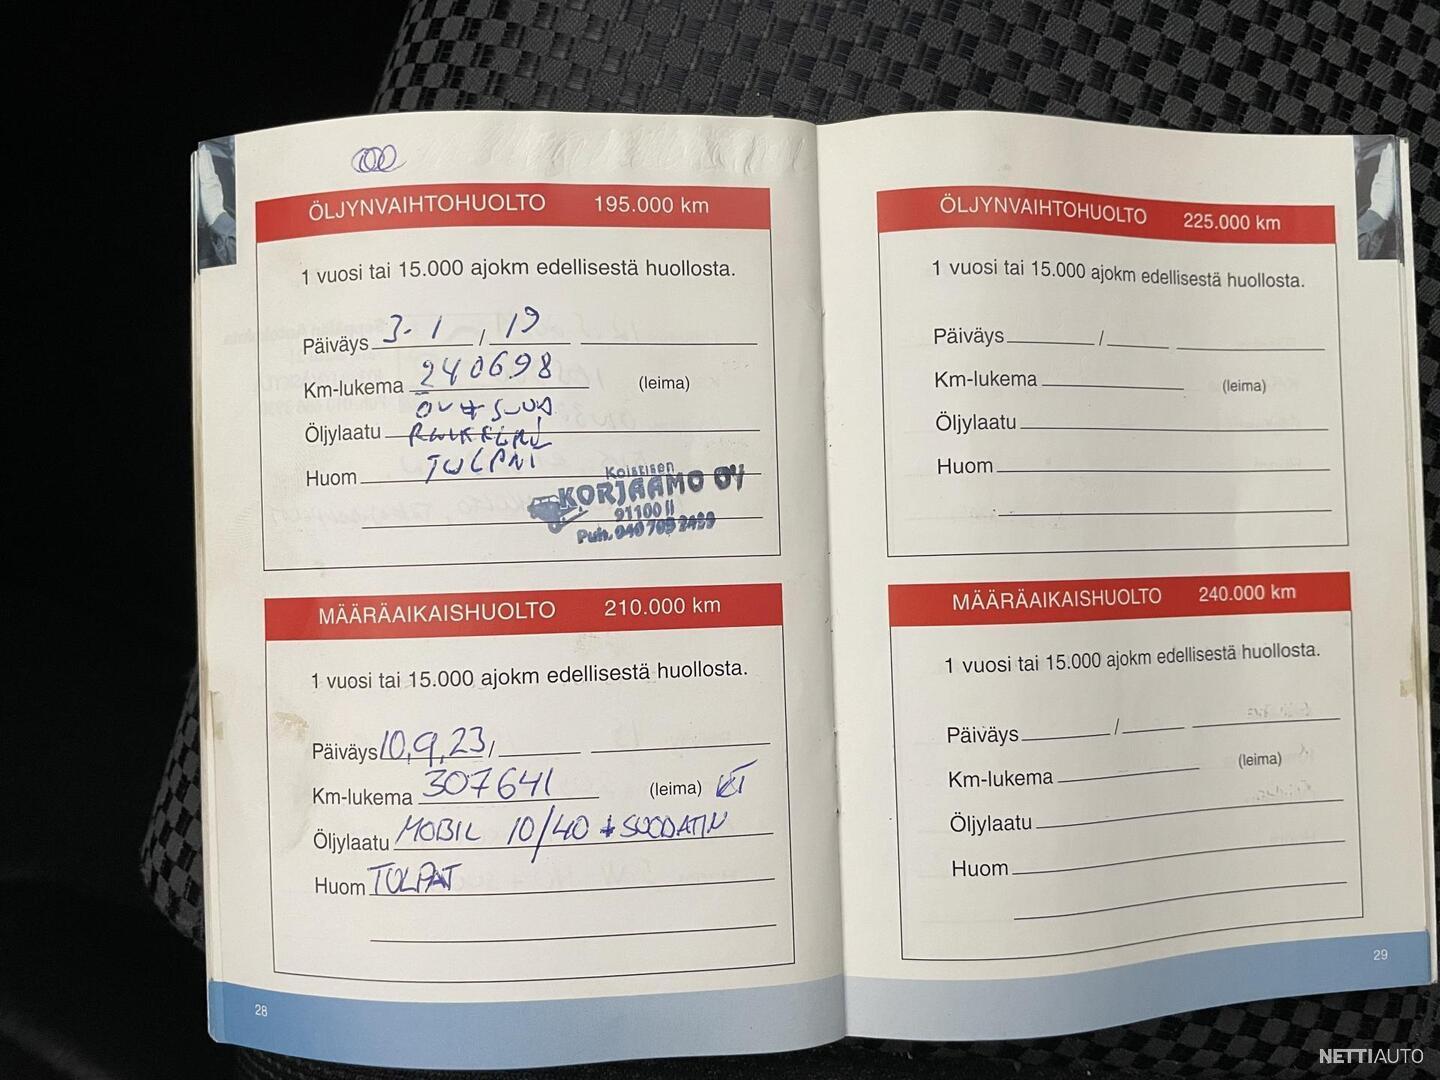 ÖLJYNVAIHTOHUOLTO 195.000 km
1 vuosi tai 15.000 ajokm edellisestä huollosta.
Päiväys 3.1 / 19
Km-lukema 240698 (leima)
Öljylaatu
Huom
Koistisen
KORJAAMO OY
91100 II
Puh. 040 705 2499
MÄÄRÄAIKAISHUOLTO 210.000 km
1 vuosi tai 15.000 ajokm edellisestä huollosta.
Päiväys 10,9,23 /
Km-lukema 307641 (leima) KT
Öljylaatu MOBIL 10/40 + SUODATIN
Huom TULPAT
28
ÖLJYNVAIHTOHUOLTO 225.000 km
1 vuosi tai 15.000 ajokm edellisestä huollosta.
Päiväys /
Km-lukema (leima)
Öljylaatu
Huom
MÄÄRÄAIKAISHUOLTO 240.000 km
1 vuosi tai 15.000 ajokm edellisestä huollosta.
Päiväys /
Km-lukema (leima)
Öljylaatu
Huom
29
NETTIAUTO